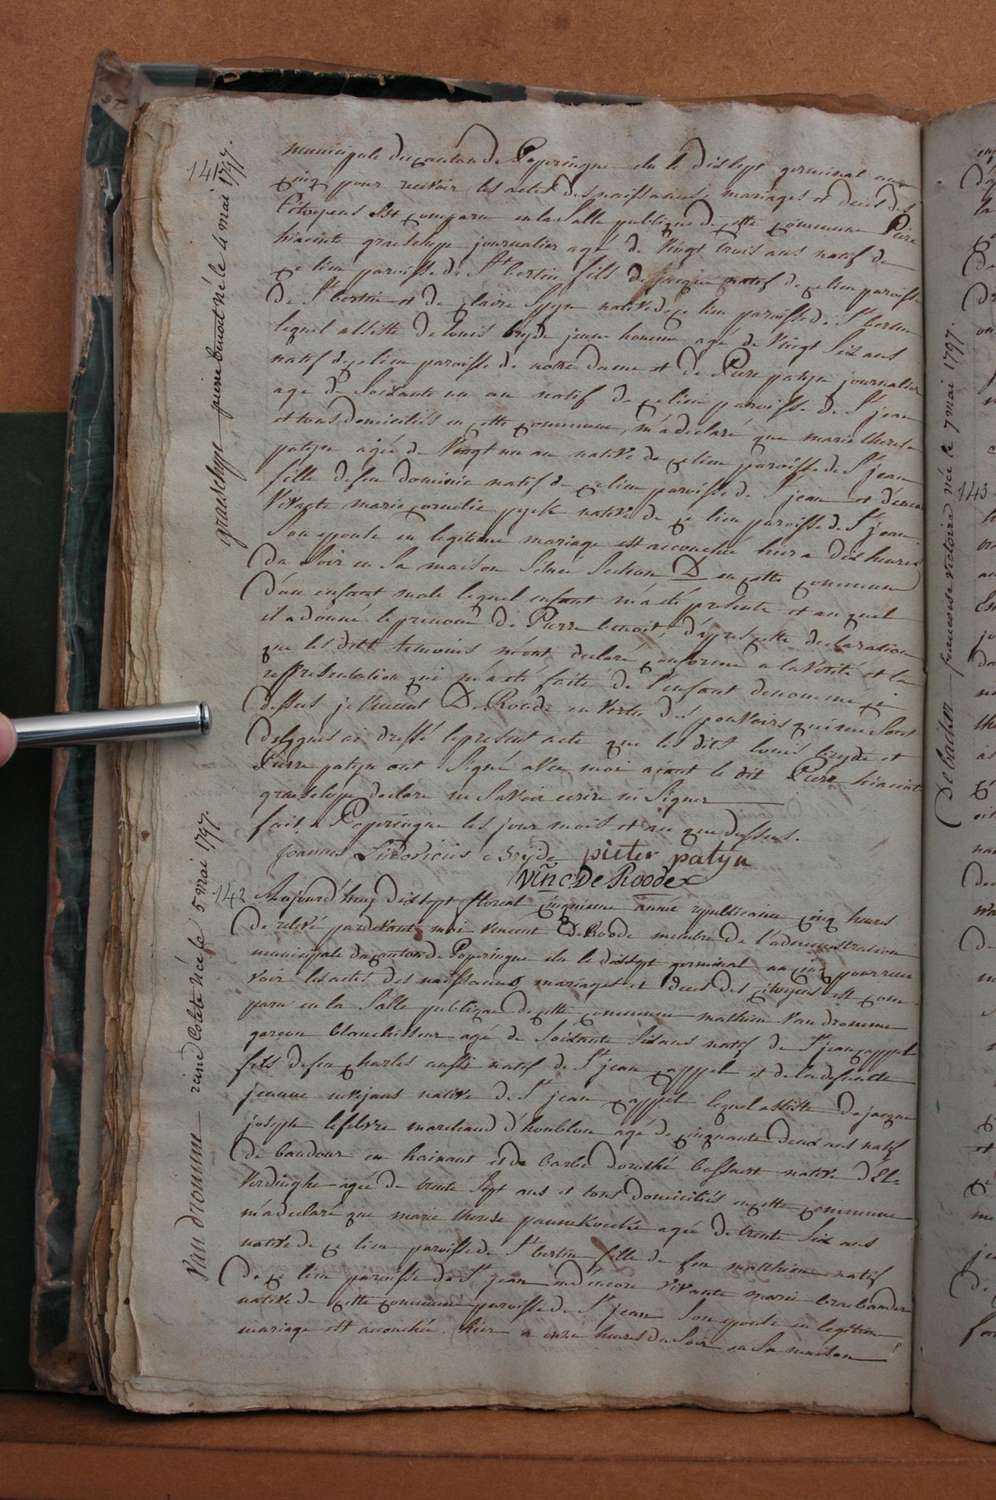 141
graeselupe pierre benoit né le 4 mai 1797.
municipale du canton de Poperingue élu le dixsept germinal an
cinq pour recevoir les actes des naissances mariages et deces des
Citoyens Est comparu en la salle publique de cette commune Pierre
hiacinte journalier agé de Vingt trois ans natif de
ce lieu paroisse de St bertin fils de jacque natif de ce lieu paroisse
de St bertin et de claire native de ce lieu paroisse de St bertin
lequel assisté de louis bryde jeune homme agé de Vingt Six ans
natif de ce lieu paroisse de notre dame et de Pierre patyn journalier
agé de Soixante un an natif de ce lieu paroisse de St jean
et tous domiciliés en cette commune, m'a declaré que marie therese
patyn agée de Vingt un an native de ce lieu paroisse de St jean
fille de feu dominic natif de ce lieu paroisse de St jean et d'encore
Vivante marie cornelie native de ce lieu paroisse de St jean
Son epouse en legitime mariage est accouchée hier a dix heures
du Soir en Sa maison Située Section D en cette commune
d'un enfant male lequel enfant m'a été présenté et au quel
il a donné le prenom de Pierre benoit, d'apres cette declaration
que les dits temoins m'ont declaré conforme a la Verité et la
representation qui m'a été faite de l'enfant denommé ci
dessus je Vincent De Roode en Vertu des pouvoirs qui me Sont
delegués ai dressé le present acte que les dits louis bryde et
Pierre patyn ont Signé avec moi aiant le dit Piere hiacint
declaré ne Savoir ecrire ni Signer
fait a Poperingue les jour mois et an que dessus.
Joannes Ludovicus Bryde pieter patyn
Vinc De Roode
142
Van dromme reine Colete née le 5 mai 1797.
Aujourd'huy dixsept floreal cinquieme année republicaine cinq heures
de relevé pardevant moi Vincent De Roode membre de l'administration
municipale du canton de Poperingue élu le dixsept germinal an cinq pour rece
voir les actes des naissances mariages et deces des citoyens est com-
paru en la Salle publique de cette commune mathieu Van dromme
garcon blanchisseur agé de Soixante Six ans natif de St jean cappel
fils de feu charles aussi natif de St jean cappel et de la defuncte
jeanne native de St jean cappel lequel assisté de jacque
joseph lefebvre marchand d'houblon agé de cinquante deux ans natif
de baudour en hainaut et de barbe dorothé bossaert native d'El-
Verdinghe agée de trente Sept ans et tous domiciliés en cette commune
m'a declaré que marie therese agée de trente Six ans
native de ce lieu paroisse de St bertin fille de feu matthieu natif
de ce lieu paroisse de St jean et d'encore Vivante marie brabander
native de cette commune paroisse de St jean Son epouse en legitime
mariage est accouchée hier a onze heures du Soir en Sa maison
De backer francoise victoire née le 7 mai 1797.
143